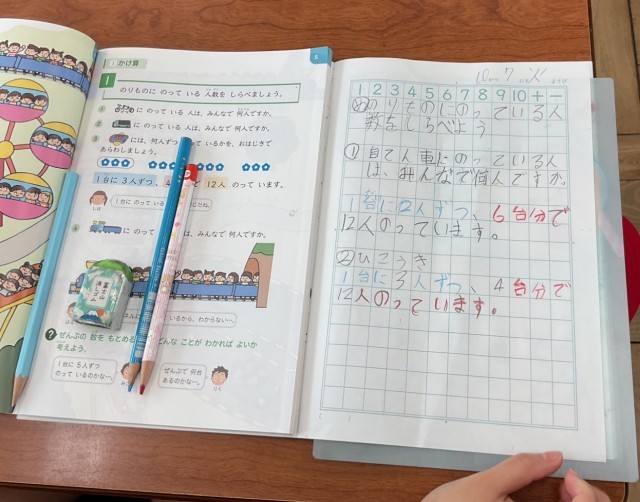 5
1 かけ算
1
のりものに のって いる 人数を しらべましょう。
① に のって いる 人は、みんなで 何人ですか。
② に のって いる 人は、みんなで 何人ですか。
③ には、何人ずつ
ているかを、おはじきで
あらわしましょう。
1台に 3人ずつ、4
で 12人 のって います。
1台に のって いる
しば
④ に のって
は、みんなで 何人ですか。
いるから、わからない…。
? ぜんぶの 数を もとめる
どんな ことが わかれば よいか
考えよう。
1台に 5人ずつ
のって いるのかな…。
ぜんぶで 何台
あるのかな…。
りく
10 7
1 2 3 4 5 6 7 8 9 10 + −
めのりものにのっている人
数をしらべよう
① 自てん車にのっている人
は、みんなで何人ですか。
1台に2人ずつ、6台分で
12人のっています。
② ひこうき
1台に3人ずつ、4台分で
12人のっています。